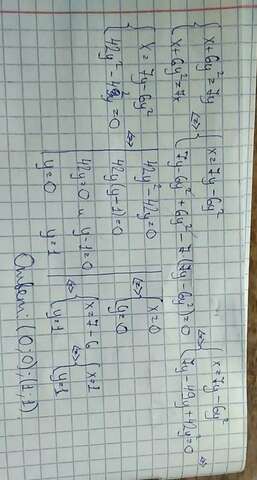 { x + 6y² = 7y
{ x + 6y² = 7x <=>
{ x = 7y - 6y²
{ 7y - 6y² + 6y² - 7(7y - 6y²) = 0 <=>
{ x = 7y - 6y²
{ 7y - 49y + 42y² = 0 <=>
{ x = 7y - 6y²
{ 42y² - 42y = 0 <=>
42y² - 42y = 0
42y(y - 1) = 0
42y = 0 и y - 1 = 0
y = 0 y = 1
{ x = 0
{ y = 0
{ x = 7 - 6
{ y = 1 <=>
{ x = 1
{ y = 1
Ответ: (0; 0); (1; 1).